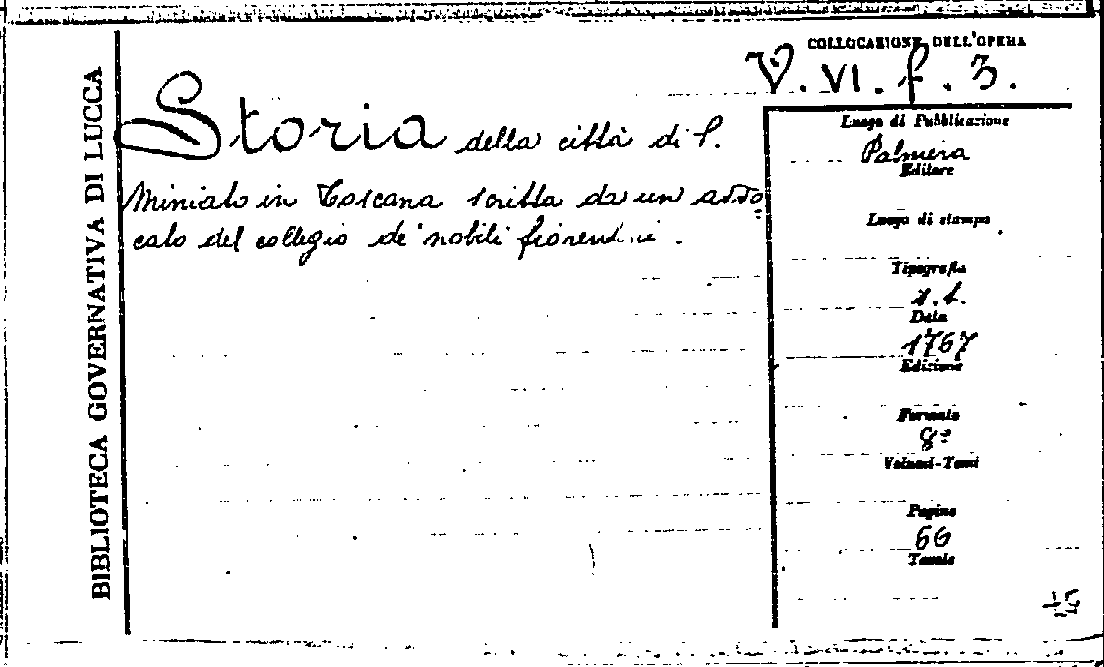 BIBLIOTECA GOVERNATIVA DI LUCCA
COLLOCAZIONE DELL'OPERA
V. VI. f. 3.
Storia della città di S.
Miniato in Toscana scritta da un avvo
cato del collegio de' nobili fiorentini.
Luogo di Pubblicazione
Palmira
Editore
Luogo di stampa
Tipografia
s.t.
Data
1767
Edizione
Formato
8º
Volumi-Tomi
Pagine
66
Tavole